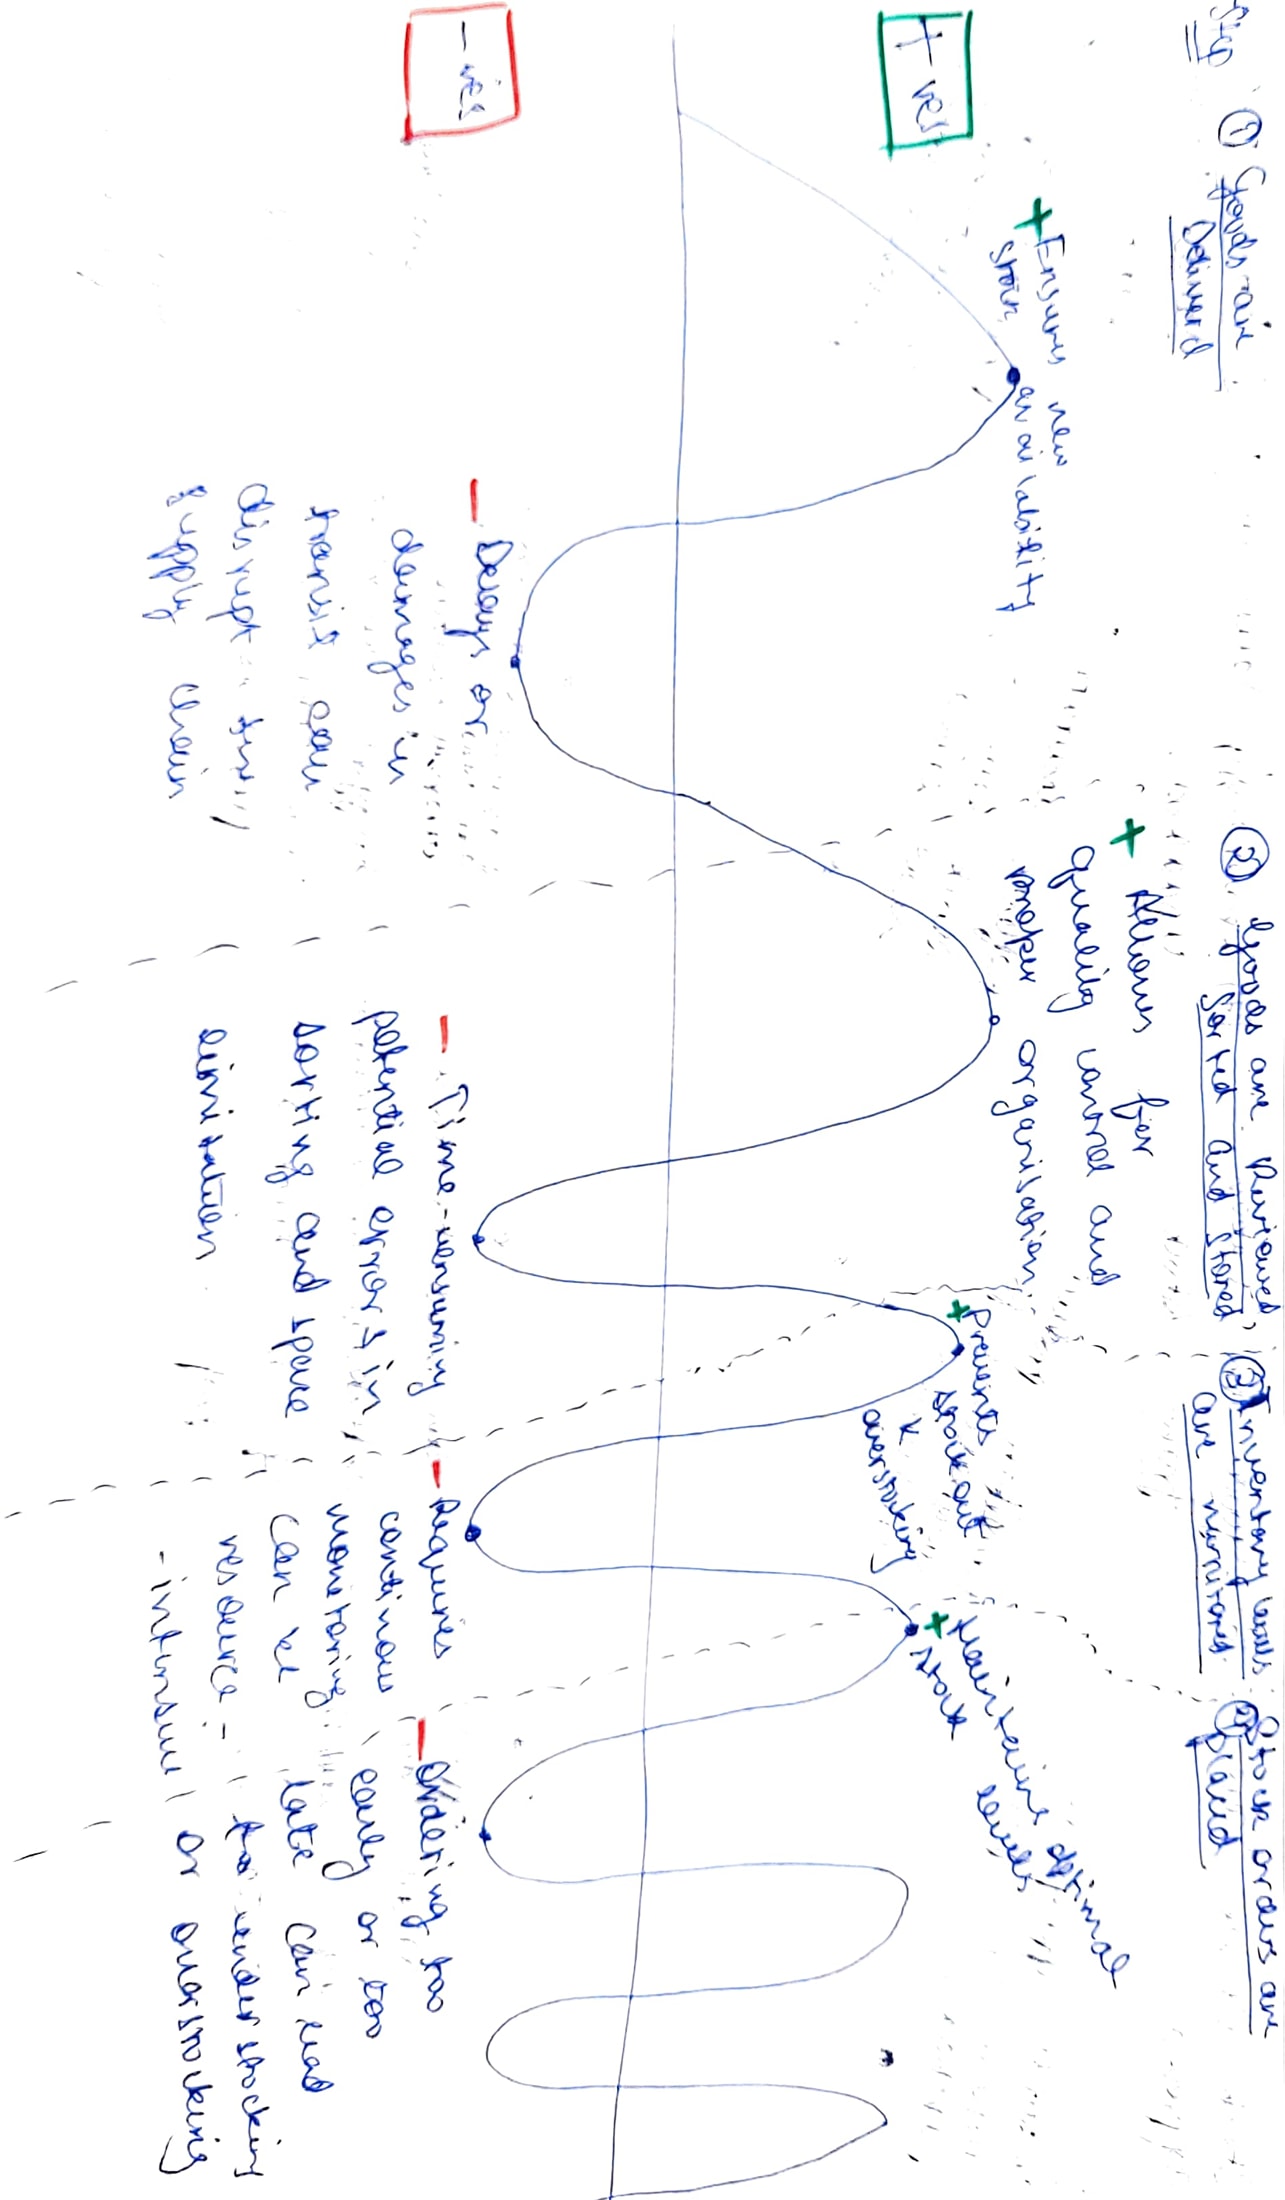 Step
① Goods are
Delivered
② Goods are Reviewed,
Sorted and Stored
③ Inventory levels
are monitored
④ Stock orders are
placed
+ Ensures new
stock availability
+ Allows for
quality control and
proper organisation
+ Prevents
stockout
&
overstocking
+ Maintains optimal
stock levels
+ ves
- ves
- Delays or
damages in
transit can
disrupt the
supply chain
- Time-consuming
potential errors in
sorting and space
limitation
- Requires
continous
monitoring
can be
resource -
- intensive
- Ordering too
early or too
late can lead
to understocking
or overstocking